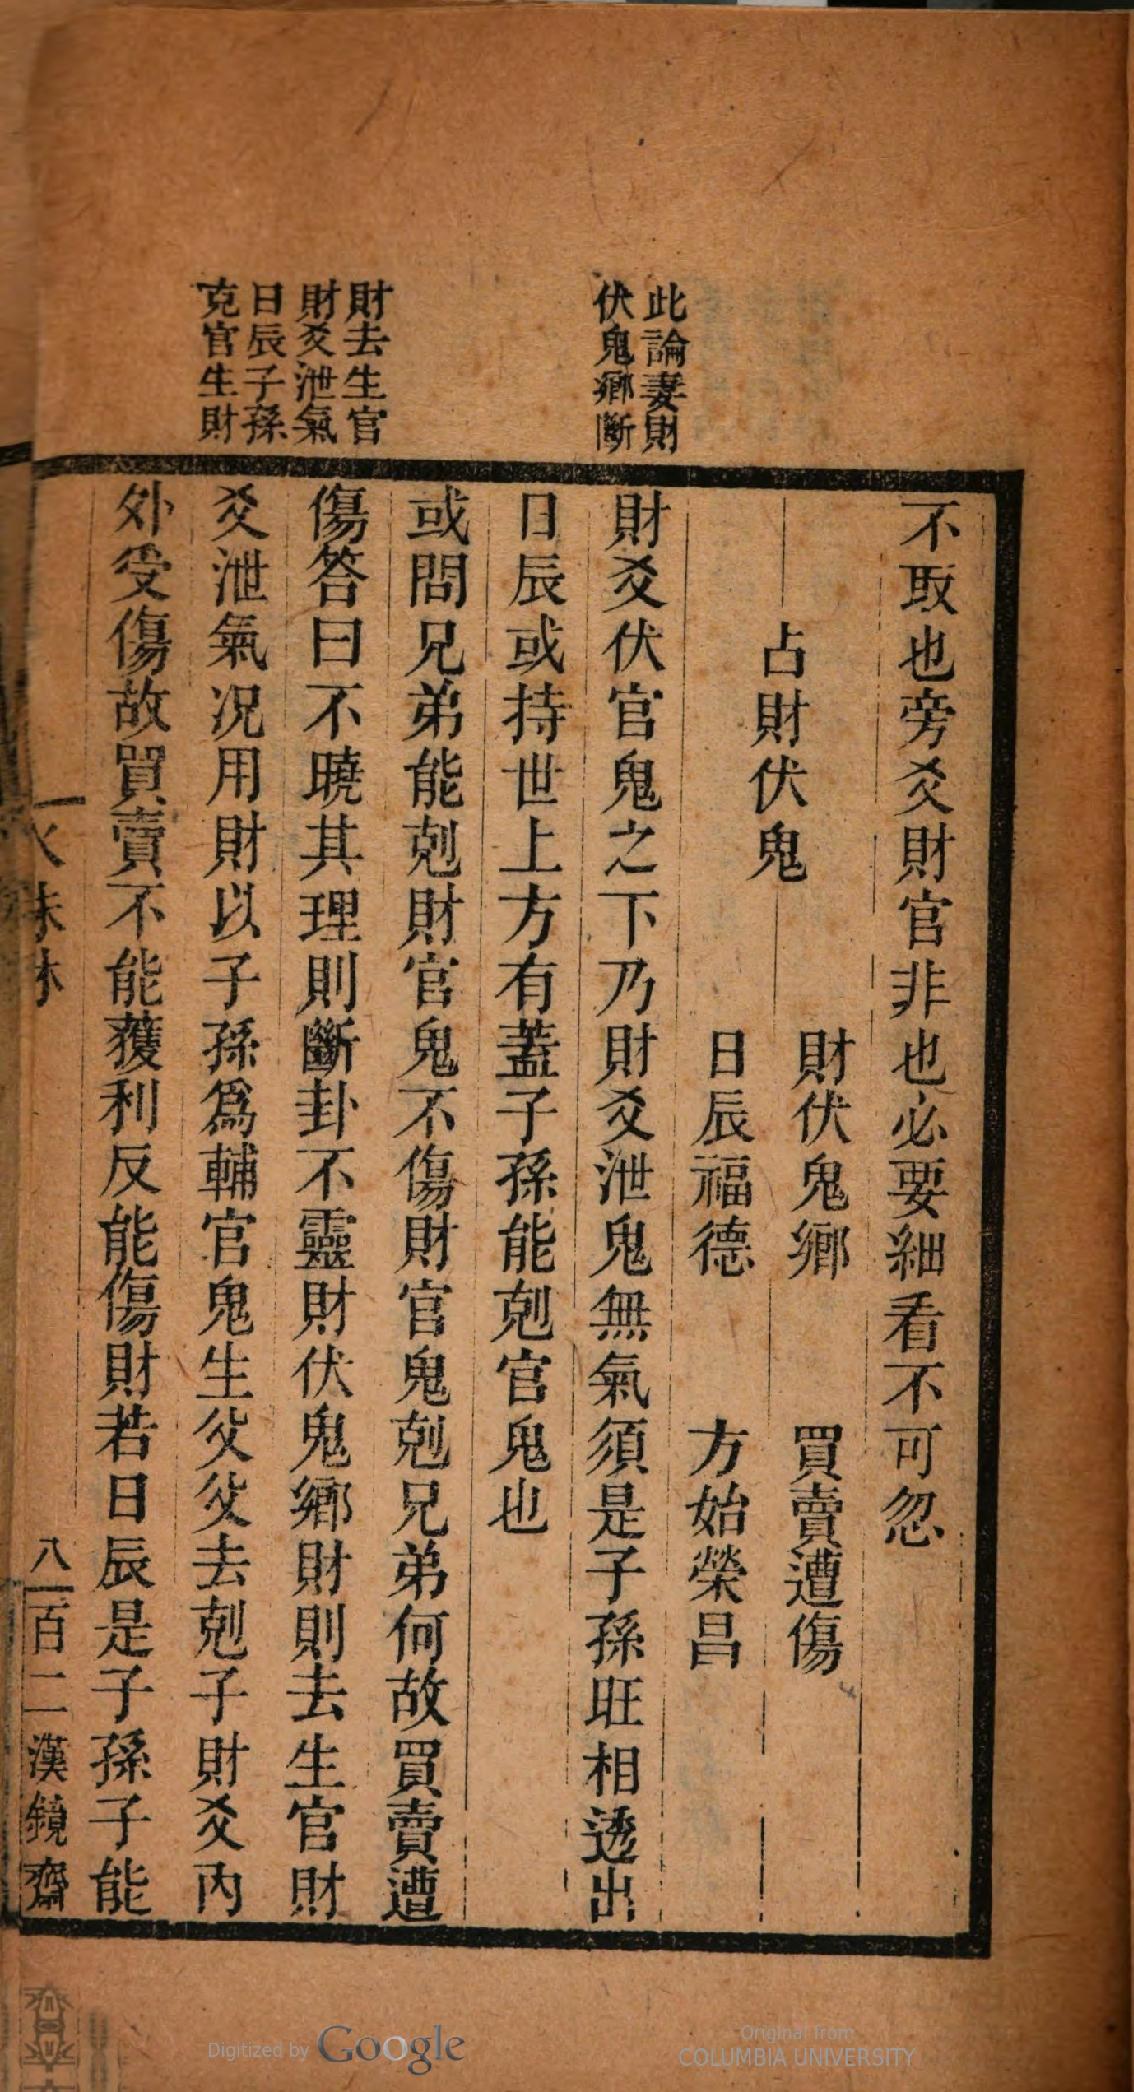 此論妻財
伏鬼鄉斷
財去生官
財爻泄氣
日辰子孫
克官生財
不取也旁爻財官非也必要細看不可忽
占財伏鬼
財伏鬼鄉 買賣遭傷
日辰福德 方始榮昌
財爻伏官鬼之下乃財爻泄鬼無氣須是子孫旺相透出
日辰或持世上方有蓋子孫能剋官鬼也
或問兄弟能剋財官鬼不傷財官鬼剋兄弟何故買賣遭
傷答曰不曉其理則斷卦不靈財伏鬼鄉財則去生官財
爻泄氣况用財以子孫爲輔官鬼生父父去剋子財爻內
外受傷故買賣不能獲利反能傷財若日辰是子孫子能
火珠林 八 百二漢鏡齋
Digitized by Google
Original from
COLUMBIA UNIVERSITY